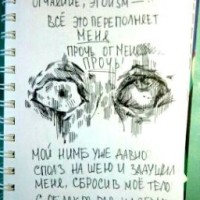 ОТЧАЯНИЕ, ЭГОИЗМ —
ВСЁ ЭТО ПЕРЕПОЛНЯЕТ
МЕНЯ
ПРОЧЬ ОТ МЕНЯ
ПРОЧЬ!
МОЙ НИМБ УЖЕ ДАВНО
СПОЛЗ НА ШЕЮ И ЗАДУШИЛ
МЕНЯ, СБРОСИВ МОЁ ТЕЛО